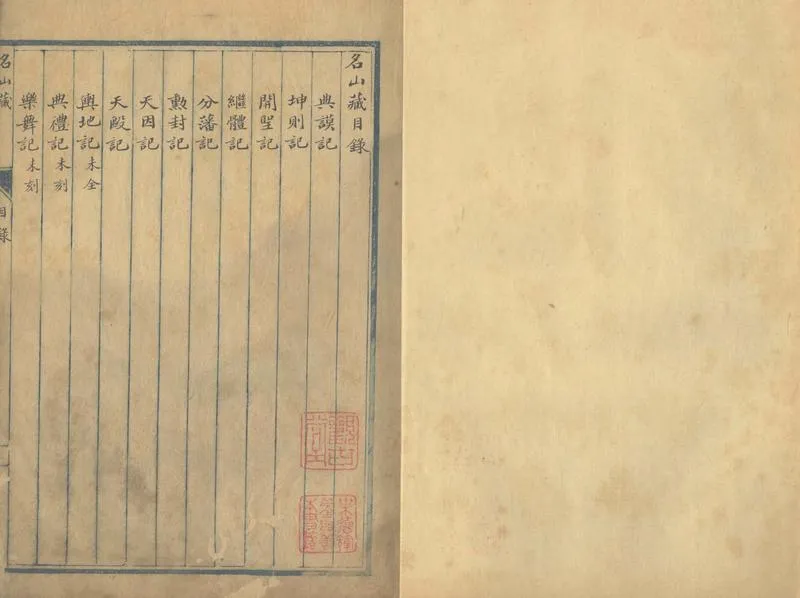 名山藏目錄
典謨記
坤則記
開聖記
繼體記
分藩記
勲封記
天因記
天毆記
輿地記未全
典禮記未刻
樂舞記未刻
名山藏
目錄